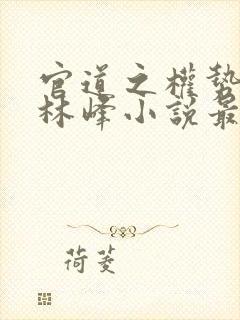 官道之權勢
林峰小說最
荷菱